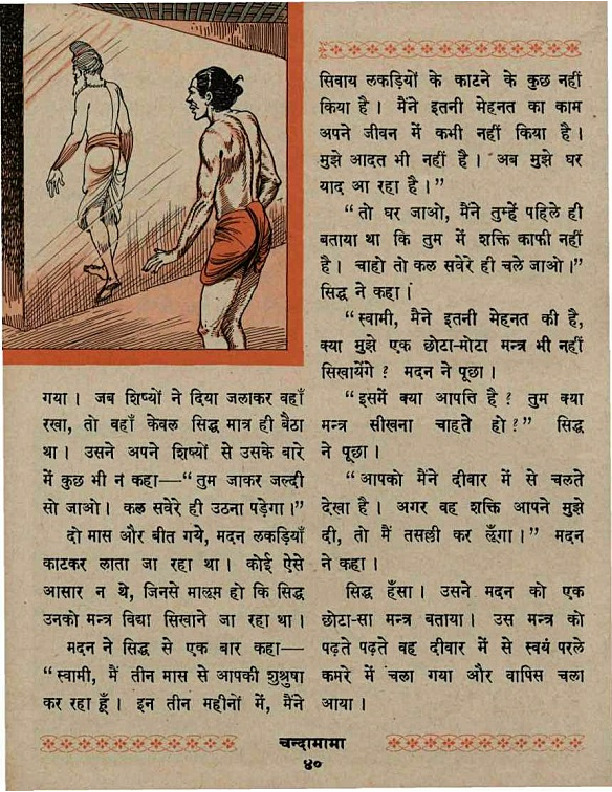 गया । जब शिष्यों ने दिया जलाकर वहाँ
रखा, तो वहाँ केवल सिद्ध मात्र ही बैठा
था । उसने अपने शिष्यों से उसके बारे
में कुछ भी न कहा—“ तुम जाकर जल्दी
सो जाओ । कल सवेरे ही उठना पड़ेगा ।”
दो मास और बीत गये, मदन लकड़ियाँ
काटकर लाता जा रहा था । कोई ऐसे
आसार न थे, जिनसे मालूम हो कि सिद्ध
उनको मन्त्र विद्या सिखाने जा रहा था ।
मदन ने सिद्ध से एक बार कहा—
“ स्वामी, मैं तीन मास से आपकी शुश्रुषा
कर रहा हूँ । इन तीन महीनों में, मैंने
सिवाय लकड़ियों के काटने के कुछ नहीं
किया है । मैंने इतनी मेहनत का काम
अपने जीवन में कभी नहीं किया है ।
मुझे आदत भी नहीं है । अब मुझे घर
याद आ रहा है ।”
“ तो घर जाओ, मैंने तुम्हें पहिले ही
बताया था कि तुम में शक्ति काफी नहीं
है । चाहो तो कल सवेरे ही चले जाओ ।”
सिद्ध ने कहा ।
“ स्वामी, मैंने इतनी मेहनत की है,
क्या मुझे एक छोटा-मोटा मन्त्र भी नहीं
सिखायेंगे ? मदन ने पूछा ।
“ इसमें क्या आपत्ति है ? तुम क्या
मन्त्र सीखना चाहते हो ?” सिद्ध
ने पूछा ।
“ आपको मैंने दीवार में से चलते
देखा है । अगर वह शक्ति आपने मुझे
दी, तो मैं तसल्ली कर लूँगा ।” मदन
ने कहा ।
सिद्ध हँसा । उसने मदन को एक
छोटा-सा मन्त्र बताया । उस मन्त्र को
पढ़ते पढ़ते वह दीवार में से स्वयं परले
कमरे में चला गया और वापिस चला
आया ।
चन्दामामा
४०